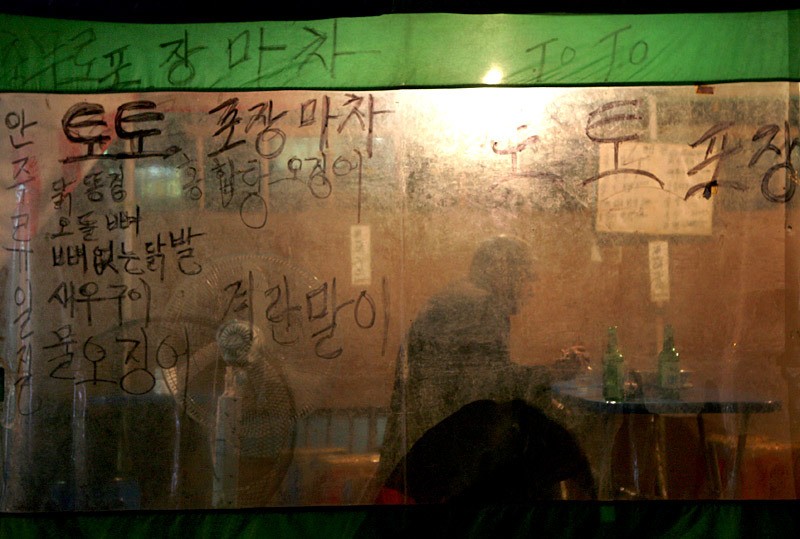 포장마차
토토 포장마차
안주류일절
닭똥집
종합탕 오징어
오돌뼈
뼈없는닭발
새우구이
계란말이
물오징어
토토 포장